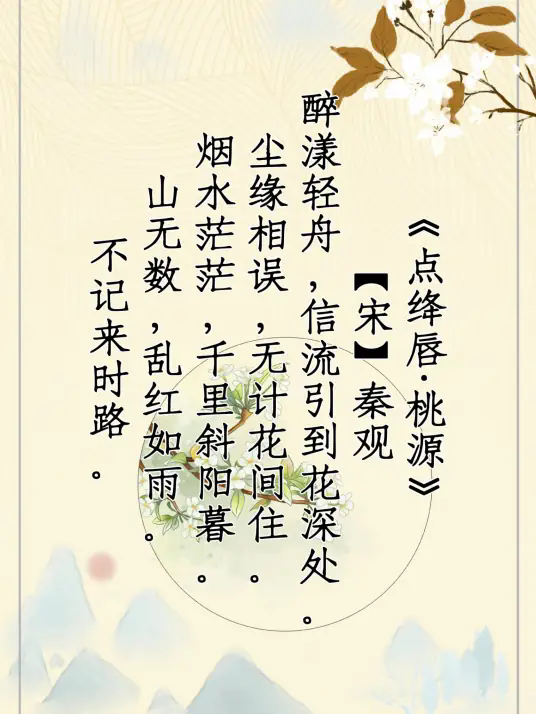 《点绛唇·桃源》
【宋】秦观
醉漾轻舟，信流引到花深处．
尘缘相误，无计花间住．
烟水茫茫，千里斜阳暮．
山无数，乱红如雨．
不记来时路．